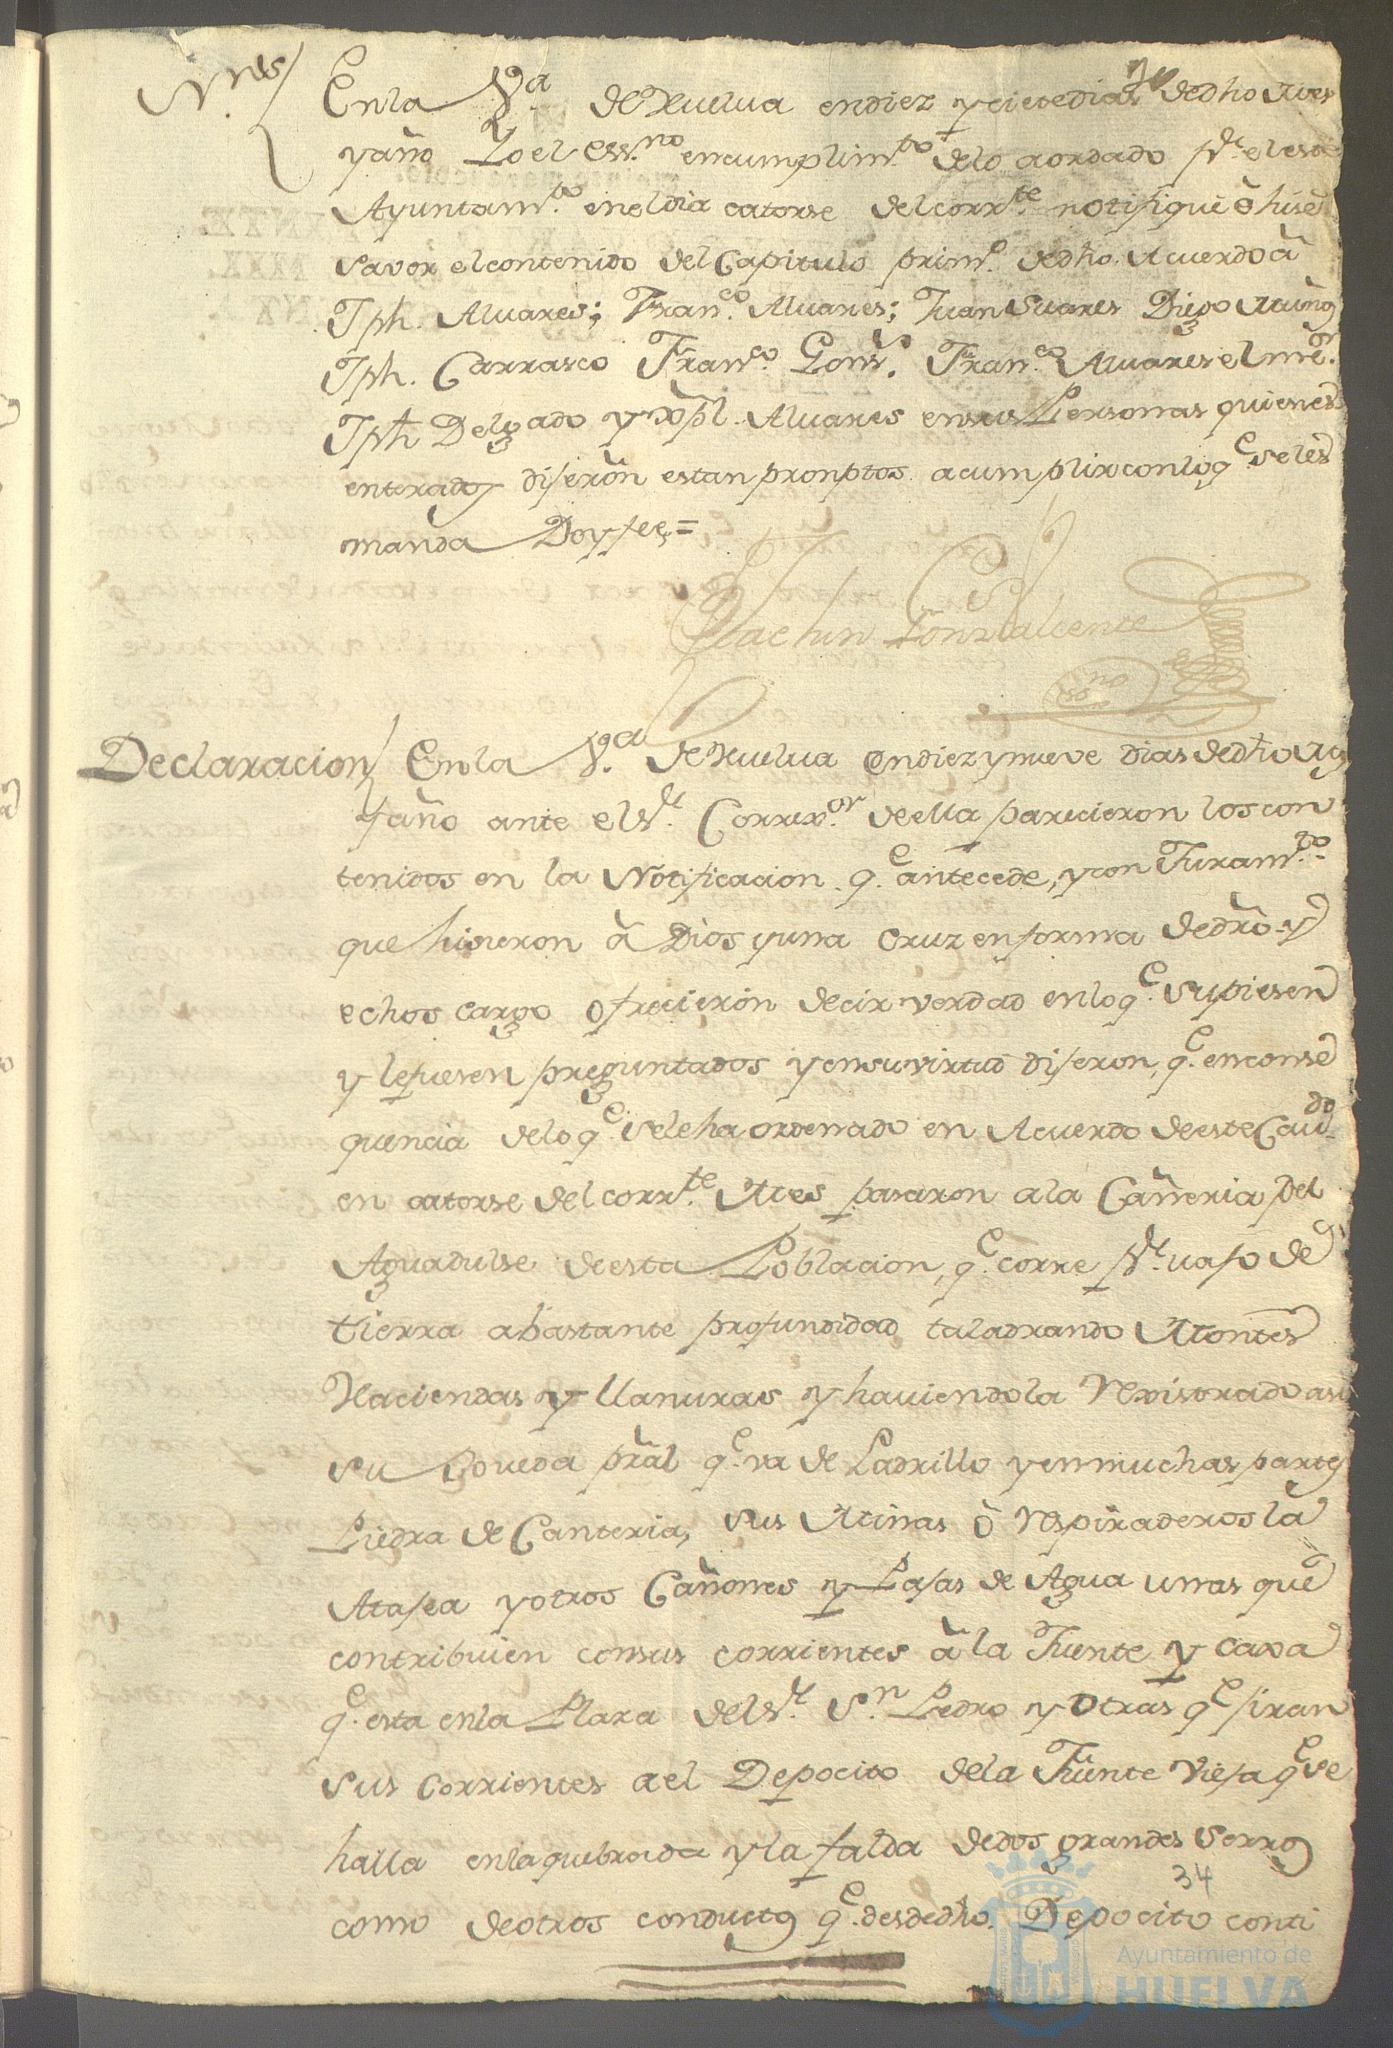 N.nes
En la V.a de Huelua en diez y ciete dias de dho Mes
y año Yo el Ess.no en cumplim.to de lo acordado p.r el este
Ayuntam.to en el dia catorse del corr.te notifiquè ò hise
saver el contenido del Capitulo prim.o de dho Acuerdo â
Jph. Alvares; Fran.co Alvares; Juan Suares Diego Muños
Jph. Carrasco Fran.co Gons.s Fran.co Alvares el me.or
Jph Delgado y Xptl. Alvares en sus Personas quienes
enterados dijeron estan promptos a cumplir con lo q.e se les
manda Doy fee=
Joachin Gonz Valiente
esno
Declaracion En la V.a de Huelva en diez y nueve dias de dho Mes
y año ante el S.r Correx.or de ella parecieron los con
tenidos en la Notificacion q.e antecede, y con Juram.to
que hisieron â Dios y una Cruz en forma de dro y
echos cargo ofrecieron decir verdad en lo q.e supiesen
y le fuesen preguntados y en su virtud dijeron, q.e en conse
quencia de lo q.e se le ha ordenado en Acuerdo de este Cavdo
en catorse del corr.te Mes pasaron a la Cañeria del
Agua dulse de esta Poblacion, q.e corre p.r vajo de
tierra a bastante profundidad taladrando Montes
Haciendas y llanuras y haviendola Rexistrado asi
su Boveda pral q.e va de Ladrillo y en muchas partes
Piedra de Canteria, sus Minas ò Respiraderos la
Atajea y otros Cañones y Lajas de Agua unas que
contribuien con sus corrientes â la Fuente y caxa
q.e esta en la Plaza del S.r S.n Pedro y otras q.e jiran
sus corrientes a el Depocito de la Fuente Vieja q.e se
halla en la quebrada y la falda de dos grandes Serros
como de otros conductos q.e desde dho. Depocito conti
34
Ayuntamiento de
HUELVA